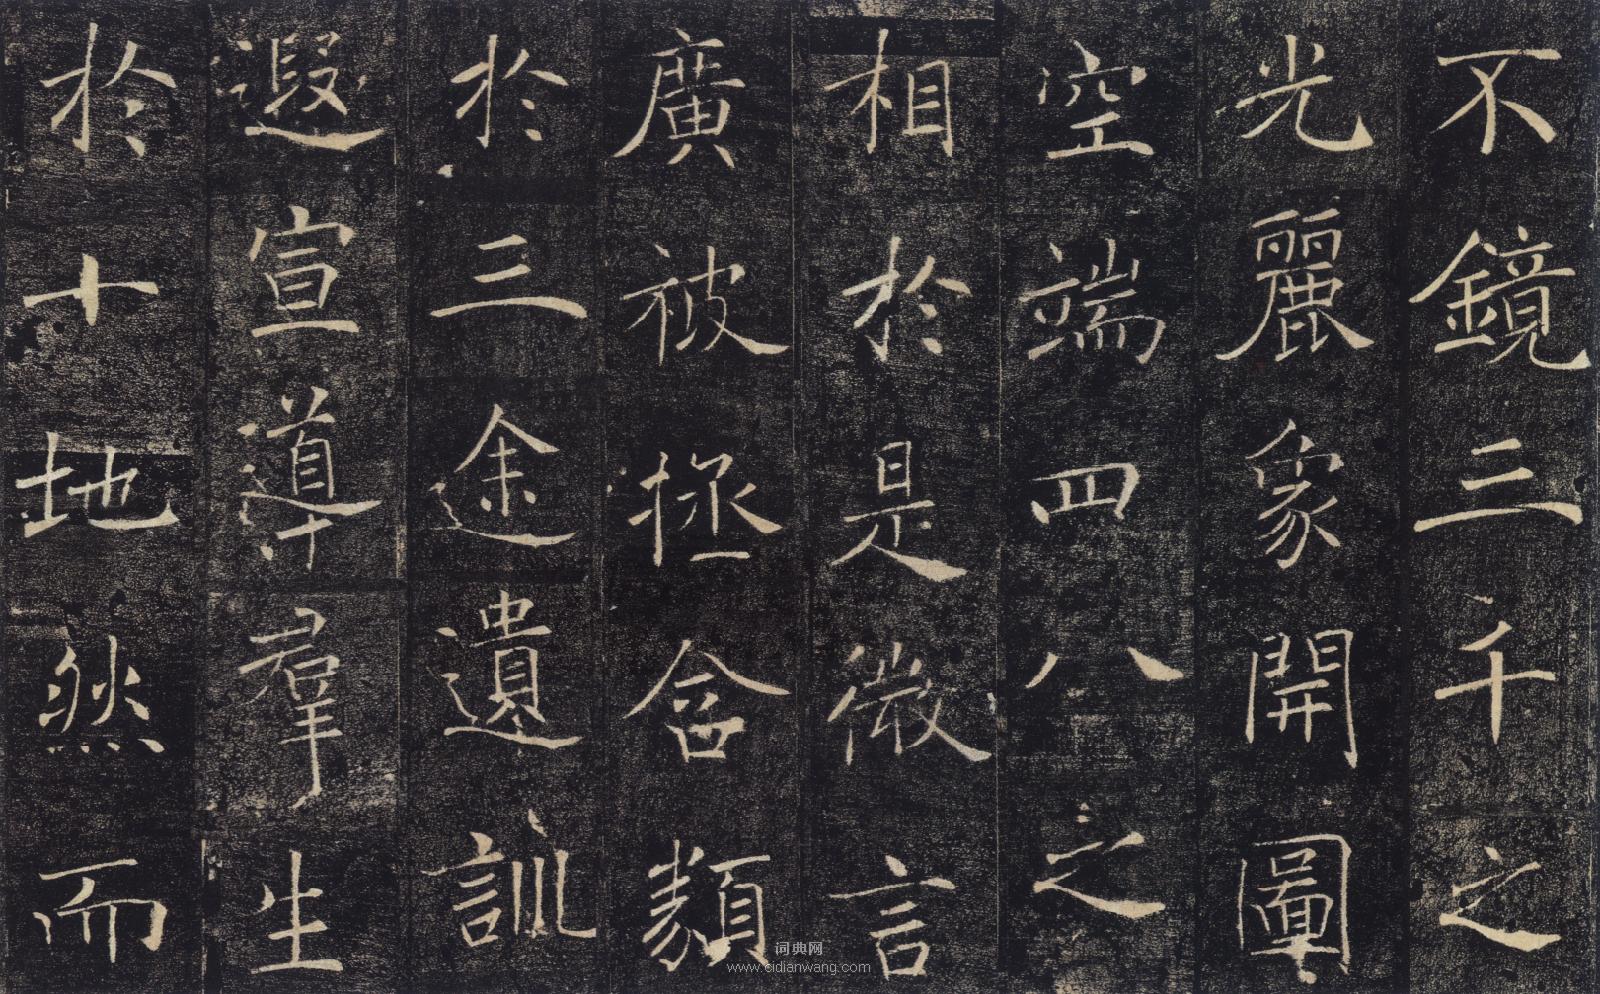 不鏡三千之
光麗象開圖
空端四八之
相於是微言
廣被拯含類
於三途遺訓
遐宣導羣生
於十地然而
词典网
www.cidianwang.com